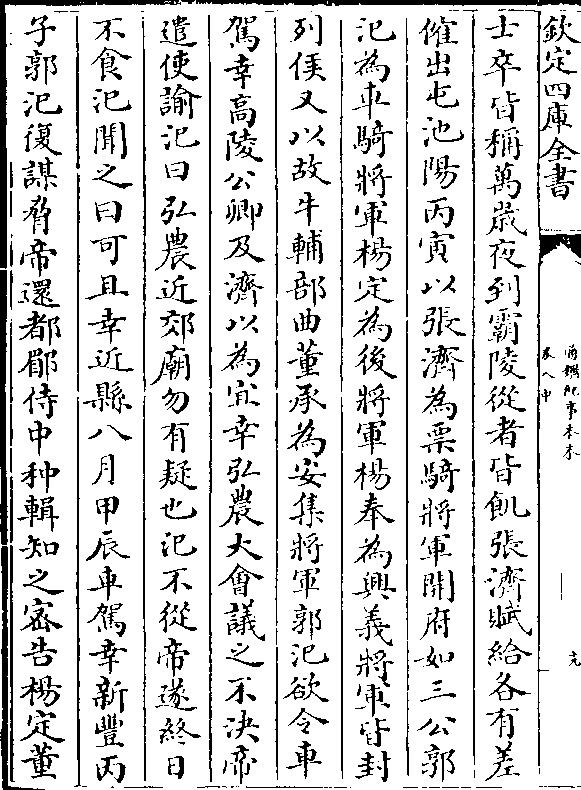 欽定四庫全書
士卒皆稱萬歲夜到霸陵從者皆飢張濟賦給各有差
傕出屯池陽丙寅以張濟為票騎將軍開府如三公郭
汜為車騎將軍楊定為後將軍楊奉為興義將軍皆封
列侯又以故牛輔部曲董承為安集將軍郭汜欲令車
駕幸高陵公卿及濟以為宜幸弘農大會議之不決帝
遣使諭汜曰弘農近郊廟勿有疑也汜不從帝遂終日
不食汜聞之曰可且幸近縣八月甲辰車駕幸新豐丙
子郭汜復謀脅帝還都郿侍中种輯知之密告楊定董